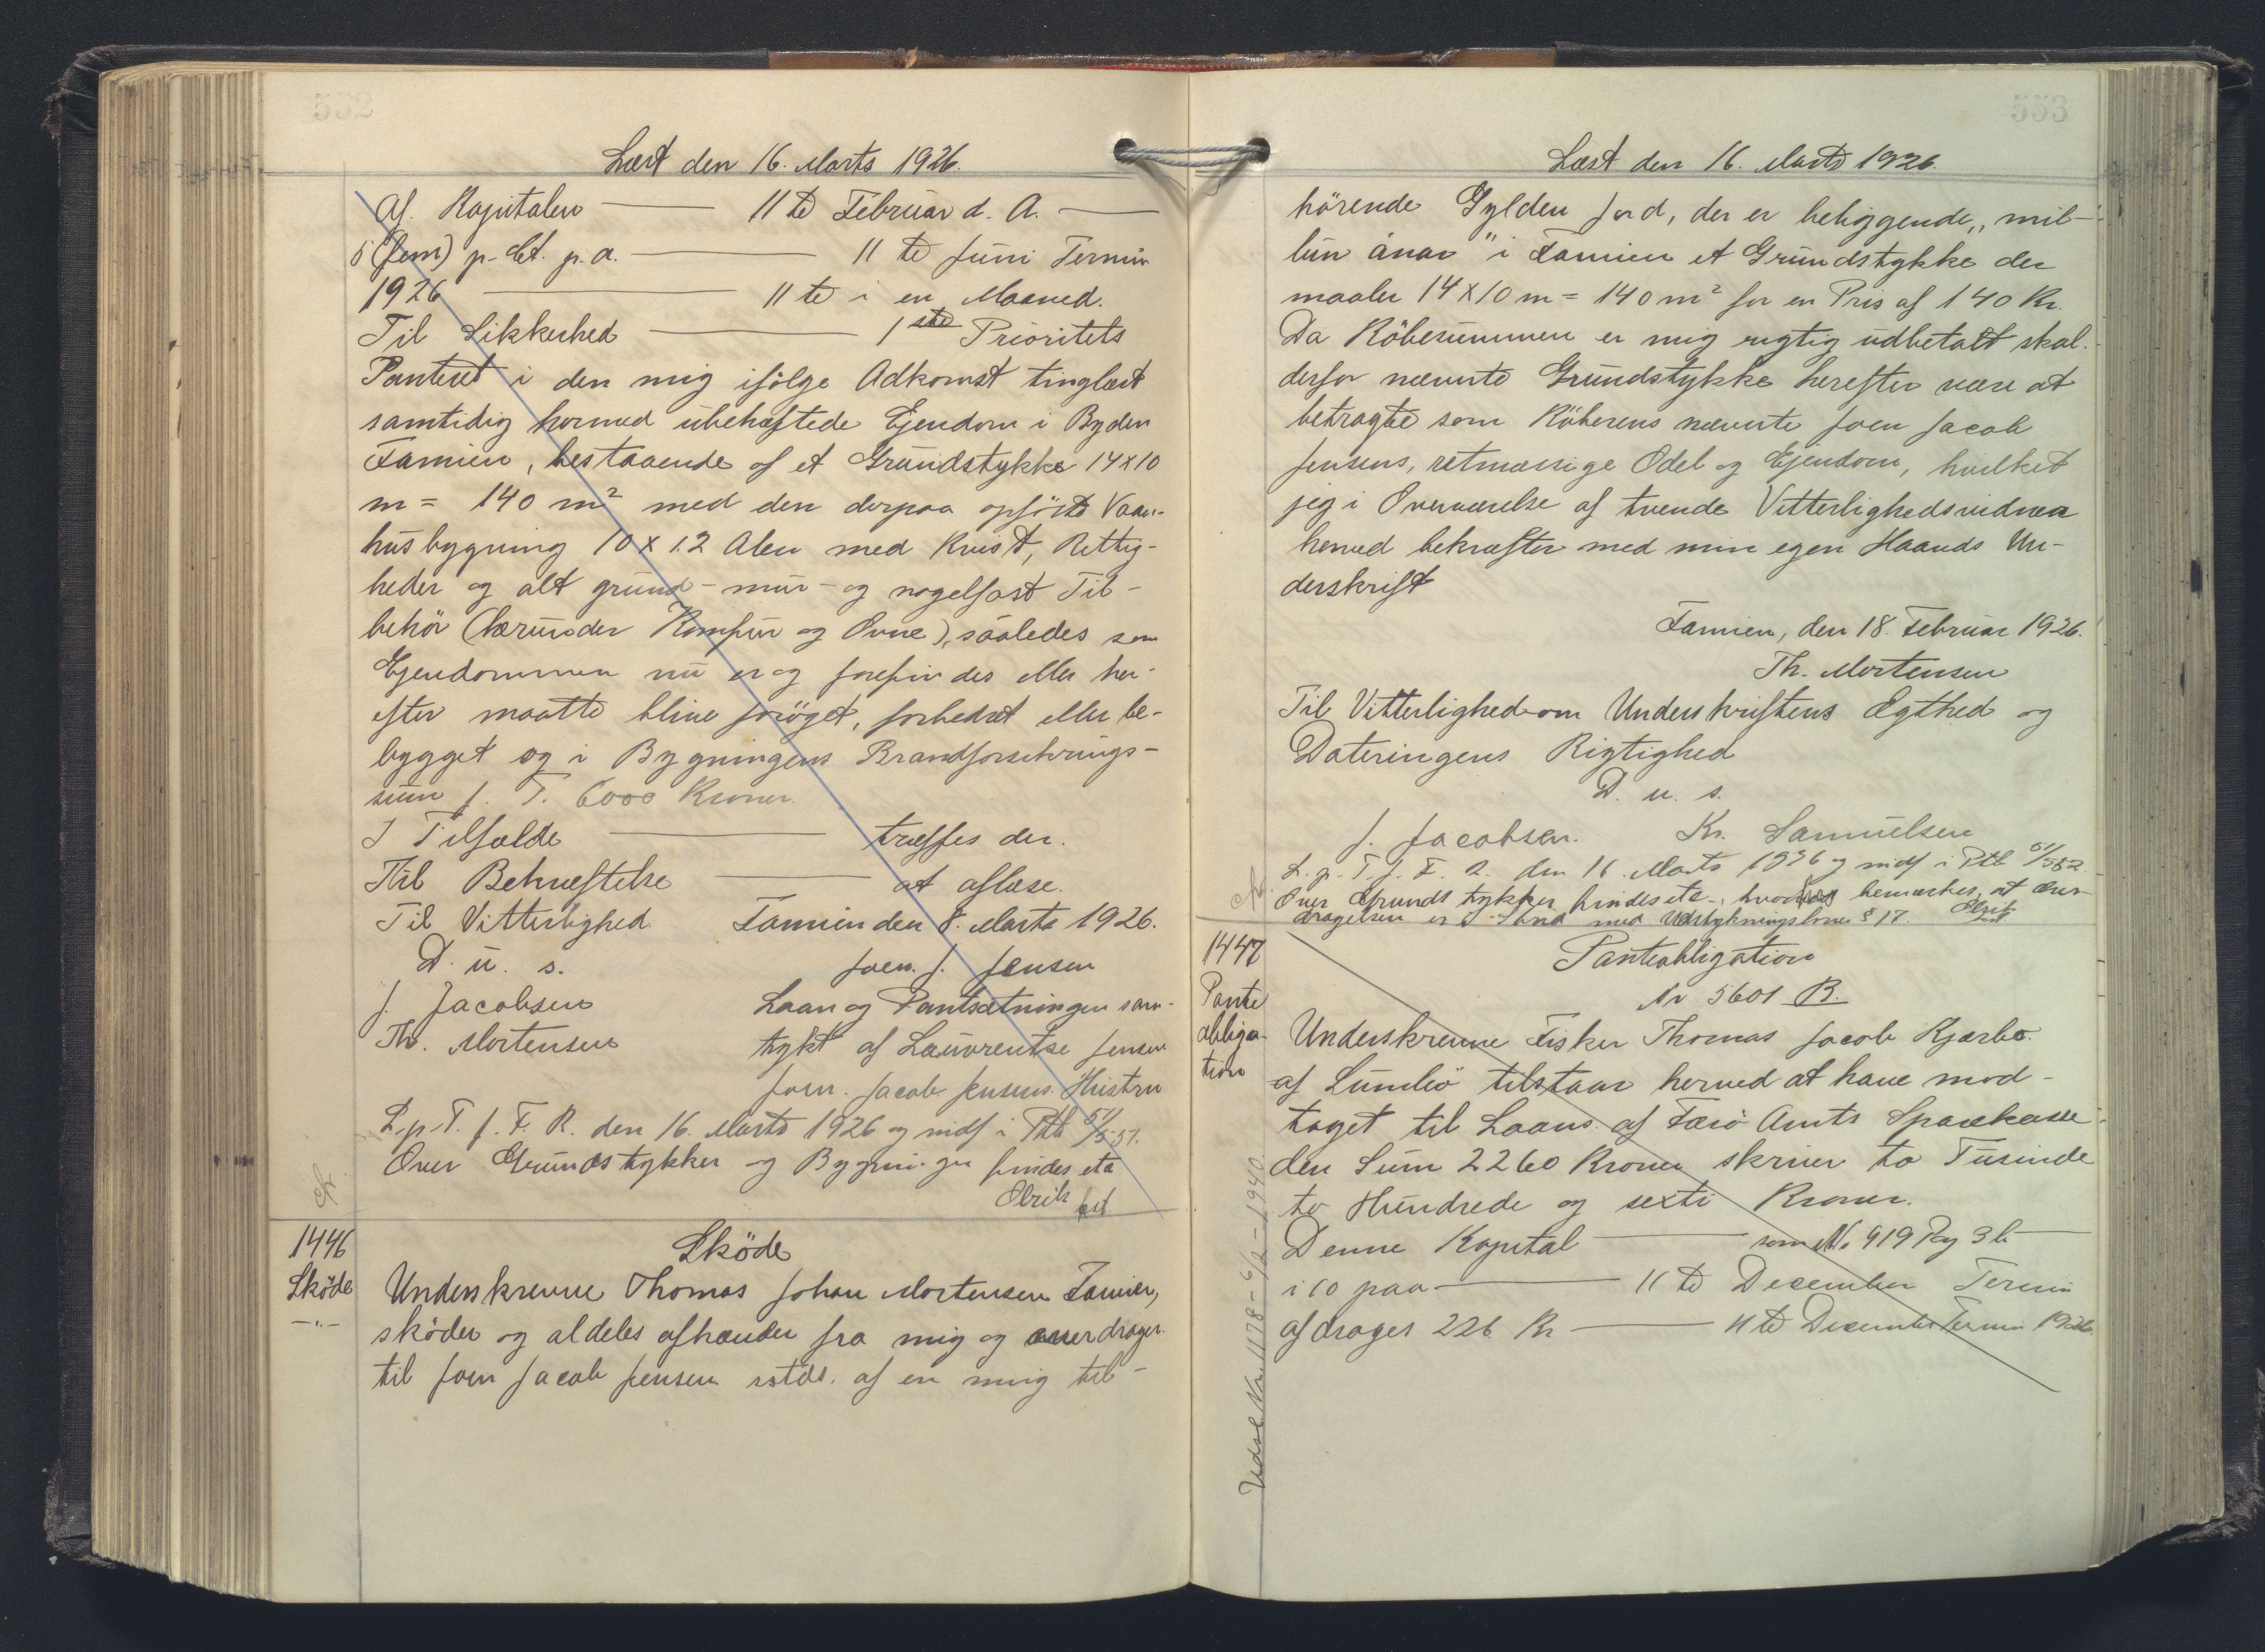 552
Læst den 16. Marts 1926.
Af Kapitalen — 11te Februar d. A. —
5 (fem) p. Ct. p. a. — 11te Juni Termin
1926 — 11te i en Maaned.
Til Sikkerhed — 1ste Prioritets
Panteret i den mig ifölge Adkomst tinglæst
samtidig hermed ubehæftede Ejendom i Bygden
Famien, bestaaende af et Grundstykke 14 x 10
m = 140 m² med den derpaa opförte Vaan-
husbygning 10 x 12 Alen med Kvist, Rettig-
heder og alt grund- mur- og nagelfast Til-
behör (herunder Komfur og Ovne), saaledes som
Ejendommen nu er og forefindes eller her-
efter maatte blive foröget, forbedret eller be-
bygget og i Bygningens Brandforsikrings-
sum p. T. 6000 Kroner.
I Tilfælde — træffes der.
Til Bekræftelse — at aflæse.
Til Vitterlighed. Famien den 8. Marts 1926.
D. u. s. Joen. J. Jensen
J. Jacobsen Laan og Pantsætningen sam-
Th. Mortensen tykt af Lauvrentse Jensen
Joen. Jacob Jensens Hustru
L. p. T. f. F. R. den 16. Marts 1926 og indf i Ptb 51/551.
Over Grundstykker og Bygninger findes etc
Elrik cst
1446
Sköde
Sköde
—"—
Underskrevne Thomas Johan Mortensen Famien,
sköder og aldeles afhænder fra mig og overdrager
til Joen Jacob Jensen sstds. af en mig til-
553
Læst den 16. Marts 1926.
hörende Gylden Jord, der er beliggende „mil-
lun ánar" i Famien et Grundstykke der
maaler 14 x 10 m = 140 m² for en Pris af 140 Kr.
Da Köbesummen er mig rigtig udbetalt skal
derfor nævnte Grundstykke herefter være at
betragte som Köberens nævnte Joen Jacob
Jensens, retmæssige Odel og Ejendom, hvilket
jeg i Overværelse af tvende Vitterlighedsvidner
herved bekræfter med min egen Haands Un-
derskrift
Famien, den 18. Februar 1926.
Th. Mortensen
Til Vitterlighed om Underskriftens Ægthed og
Dateringens Rigtighed
D. u. s.
J. Jacobsen. Kr. Samuelsen
L. p. T. f. F. R. den 16. Marts 1926 og indf i Ptb 51/552.
Over Grundstykker findes etc., hvorhos bemærkes, at over-
dragelsen er i Strid med Udstykningsloven § 17. Elrik cst
1447
Pante
obliga-
tion
Panteobligation
Nr 5601 B.
Underskrevne Fisker Thomas Jacob Kjærbo
af Sumbö tilstaar herved at have mod-
taget til Laans af Færö Amts Sparekasse
den Sum 2260 Kroner skriver to Tusinde
to Hundrede og sexti Kroner.
Denne Kapital — som No 919 Pag 36 —
i 10 paa — 11te December Termin
afdrages 226 Kr — 11te December Termin 1926.
Udsl. No. 1178 - 6/2 - 1940.